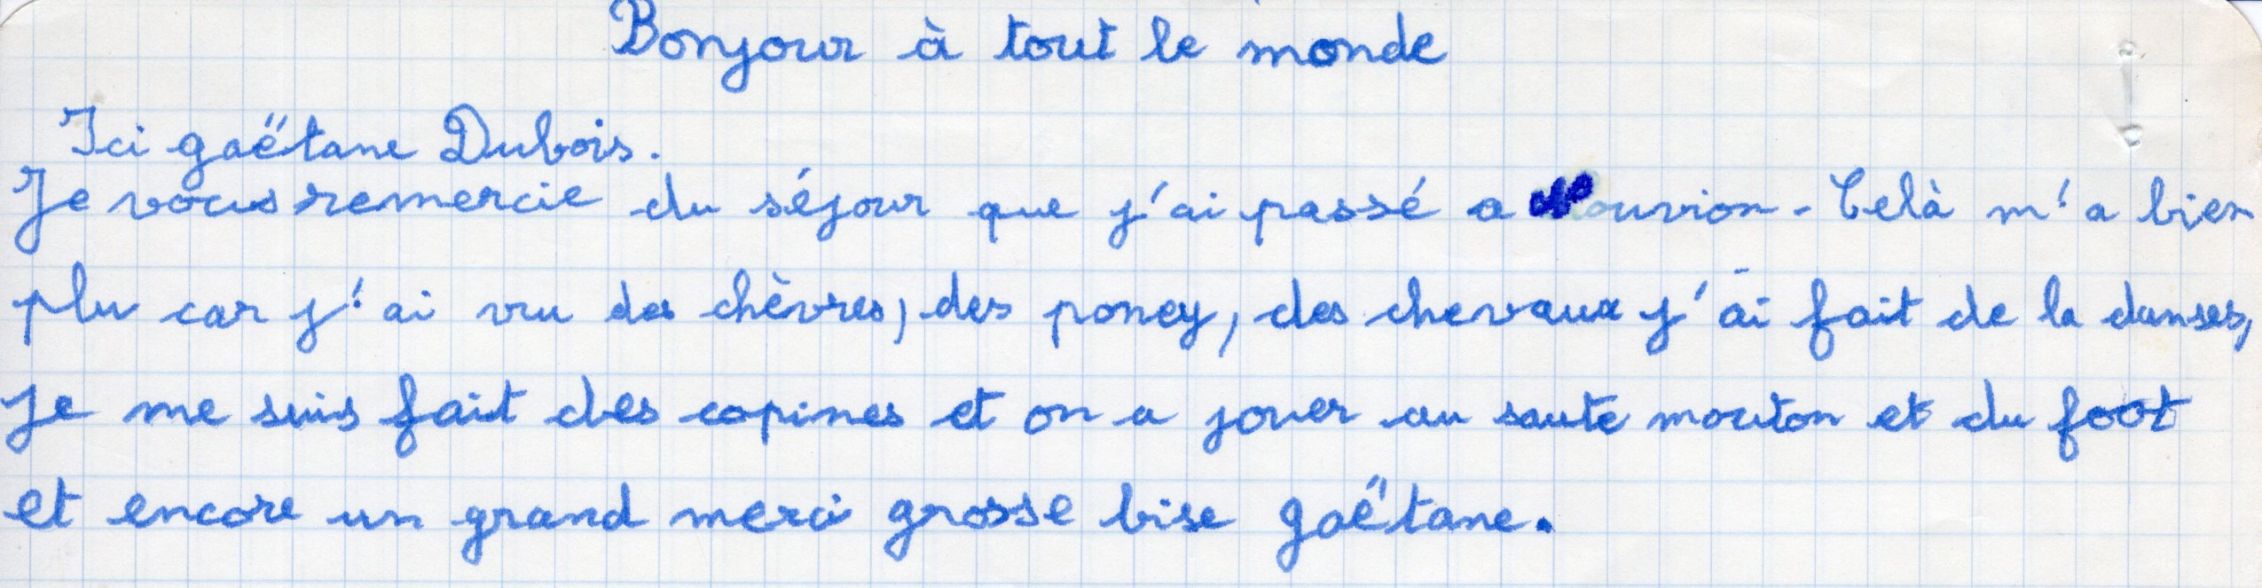 Bonjour à tout le monde
Ici gaëtane Dubois.
Je vous remercie du séjour que j'ai passé a Nouvion. Celà m'a bien
plu car j'ai vu des chèvres, des poney, des chevaux j'ai fait de la danses,
je me suis fait des copines et on a jouer au saute mouton et du foot
et encore un grand merci grosse bise gaëtane.